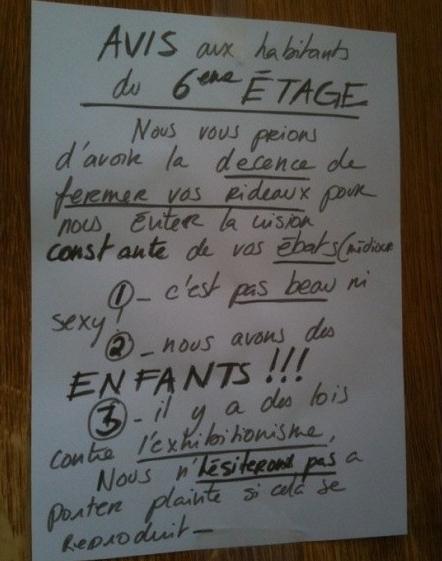 AVIS aux habitants
du 6ème ÉTAGE
Nous vous prions
d'avoir la decence de
fermer vos rideaux pour
nous éviter la vision
constante de vos ébats (médiocre
① - c'est pas beau ni
sexy !
② - nous avons des
ENFANTS !!!
③ - il y a des lois
contre l'exhibitionisme,
Nous n'hésiterons pas a
porter plainte si cela se
REPRODUIT —